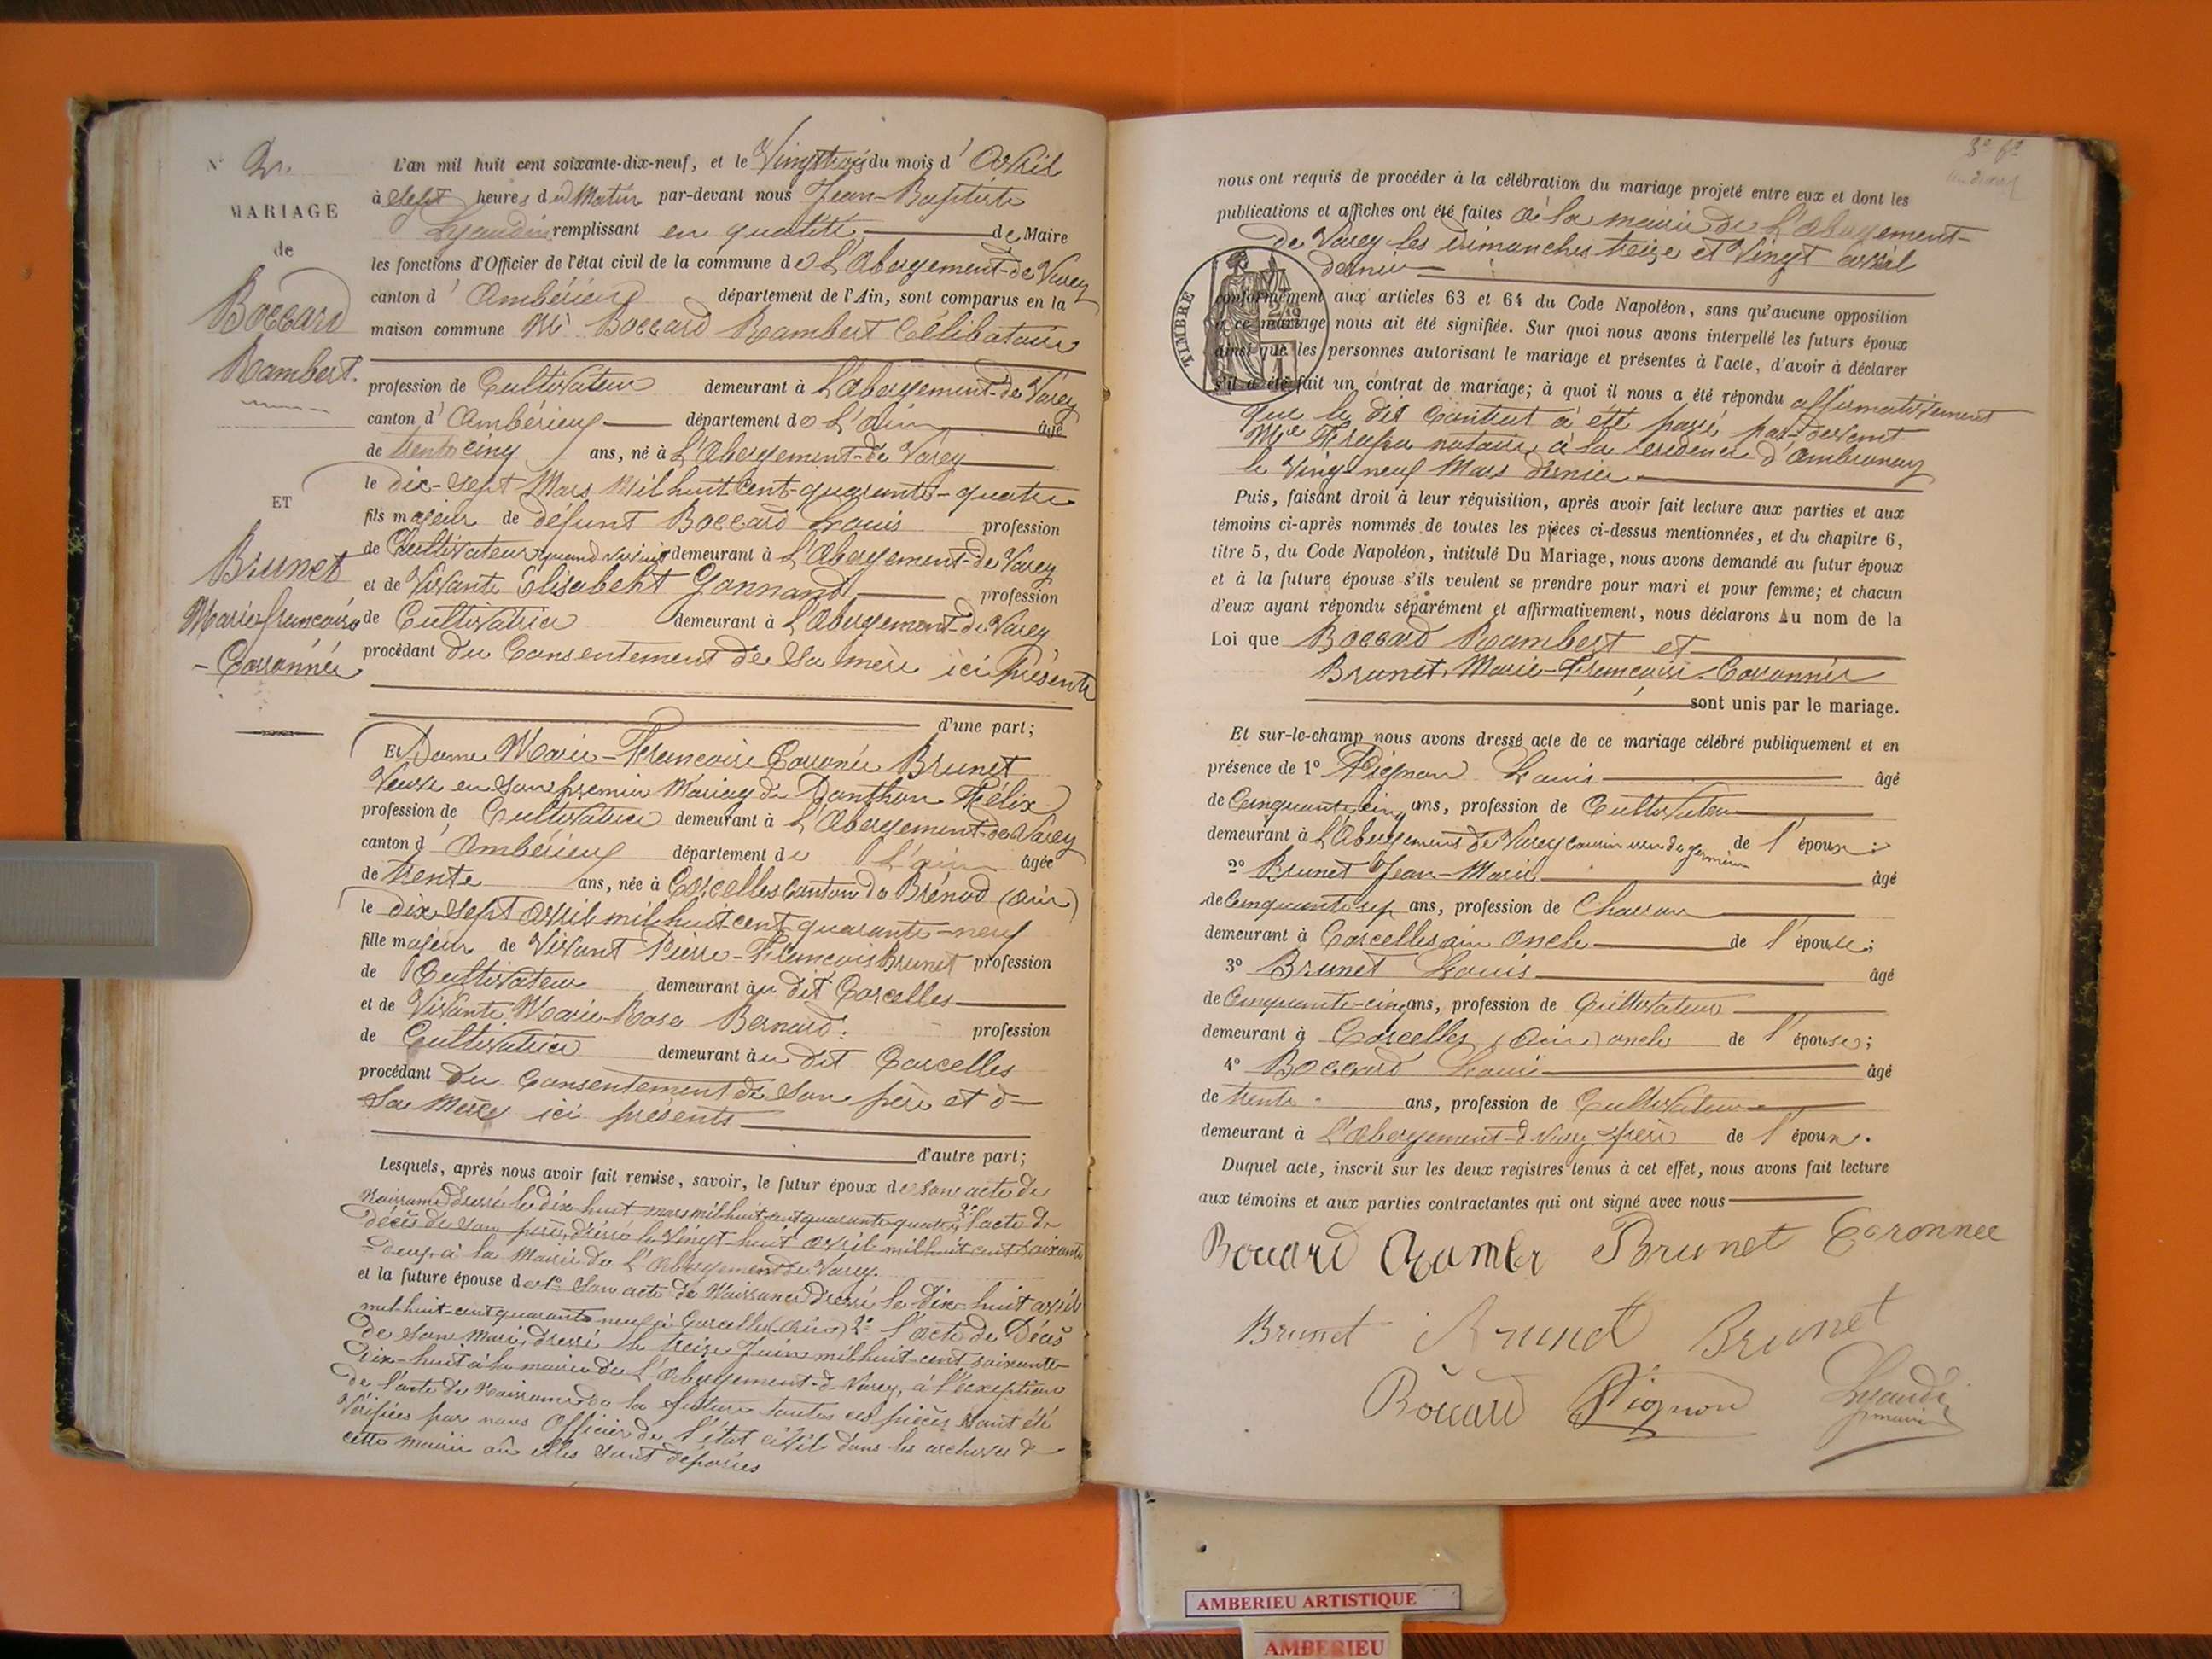 N° 2
MARIAGE
de
Boccard
Rambert.
ET
Brunet
Marie françoise
- Coronnée
L'an mil huit cent soixante-dix-neuf, et le Vingt trois du mois d' Avril
à Sept heures du Matin par-devant nous Jean-Baptiste
Lyaudin remplissant en qualité de Maire
les fonctions d'Officier de l'état civil de la commune de L'Abergement-de Varey
canton d' Ambérieux département de l'Ain, sont comparus en la
maison commune Mr Boccard Rambert Célibataire
profession de Cultivateur demeurant à L'Abergement-de Varey
canton d' Ambérieux département de L'Ain âgé
de trente cinq ans, né à L'Abergement-de Varey
le dix-sept Mars Mil huit Cent-quarante-quatre
fils majeur de défunt Boccard Louis profession
de Cultivateur quand vivait demeurant à L'Abergement-de Varey
et de Vivante Elisabeht Gonnand profession
de Cultivatrice demeurant à L'Abergement-de Varey
procédant du Consentement de Sa mère ici présente
d'une part;
Et Dame Marie-Francoise Coronée Brunet
Veuve en Son premier Mariag de Danthon Félix
profession de Cultivatrice demeurant à L'Abergement-de Varey
canton d' Ambérieux département de L'ain âgée
de trente ans, née à Corcelles Canton de Brénod (Ain)
le dix-sept Avril mil huit cent quarante-neuf
fille majeure de Vivant Pierre-Francois Brunet profession
de Cultivateur demeurant au dit Corcelles
et de Vivante Marie-Rose Bernard profession
de Cultivatrice demeurant au dit Corcelles
procédant du Consentement de Son père et d
Sa Mère ici présents
d'autre part;
Lesquels, après nous avoir fait remise, savoir, le futur époux de Son acte de
Naissance dressé le dix huit mars mil huit cent quarante quatre 2° l'acte de
décès de Son père, dressé le Vingt-huit Avril mil huit cent soixante
-deux à la Mairie de L'Abergement de Varey.
et la future épouse de 1° Son acte de Naissance dressé le Dix-huit avril
mil-huit-cent quarante neuf à Corcelles (Ain) 2° l'acte de Décès
de Son Mari, dressé le treize Juin mil huit-cent soixante
dix-huit à la mairie de L'Abergement-d Varey, à l'éxception
de l'acte de Naissance de la future toutes ces pièces ont été
Vérifiées par nous Officier de l'état civil dans les archives de
cette mairie où elles sont déposées
nous ont requis de procéder à la célébration du mariage projeté entre eux et dont les
publications et affiches ont été faites à la mairie de L'Abergement-
de Varey les Dimanches treize et Vingt avril
dernier
TIMBRE
conformément aux articles 63 et 64 du Code Napoléon, sans qu'aucune opposition
à ce mariage nous ait été signifiée. Sur quoi nous avons interpellé les futurs époux
ainsi que les personnes autorisant le mariage et présentes à l'acte, d'avoir à déclarer
s'il a été fait un contrat de mariage; à quoi il nous a été répondu affirmativement
que le dit Contrat à été passé par-devant
notaire à la résidence d'Ambronay
le Vingt-neuf Mars dernier
Puis, faisant droit à leur réquisition, après avoir fait lecture aux parties et aux
témoins ci-après nommés de toutes les pièces ci-dessus mentionnées, et du chapitre 6,
titre 5, du Code Napoléon, intitulé Du Mariage, nous avons demandé au futur époux
et à la future épouse s'ils veulent se prendre pour mari et pour femme; et chacun
d'eux ayant répondu séparément et affirmativement, nous déclarons Au nom de la
Loi que Boccard Rambert et
Brunet, Marie-Françoise Coronnée
sont unis par le mariage.
Et sur-le-champ nous avons dressé acte de ce mariage célébré publiquement et en
présence de 1° Pignon Louis âgé
de Cinquante cinq ans, profession de Cultivateur
demeurant à L'Abergement de Varey cousin issu de germain de l'époux;
2° Brunet Jean-Marie âgé
de Cinquante sep ans, profession de Charron
demeurant à Corcelles ain oncle de l'épouse;
3° Brunet Louis âgé
de Cinquante-cinq ans, profession de Cultivateur
demeurant à Corcelles (Ain) oncle de l'épouse;
4° Boccard Louis âgé
de trente ans, profession de Cultivateur
demeurant à L'Abergement-d Varey frère de l'époux.
Duquel acte, inscrit sur les deux registres tenus à cet effet, nous avons fait lecture
aux témoins et aux parties contractantes qui ont signé avec nous
Boccard Rambr Brunet Coronnee
Brunet Brunet Brunet
Boccard Pignon Lyaudi
maire
AMBERIEU ARTISTIQUE
AMBERIEU